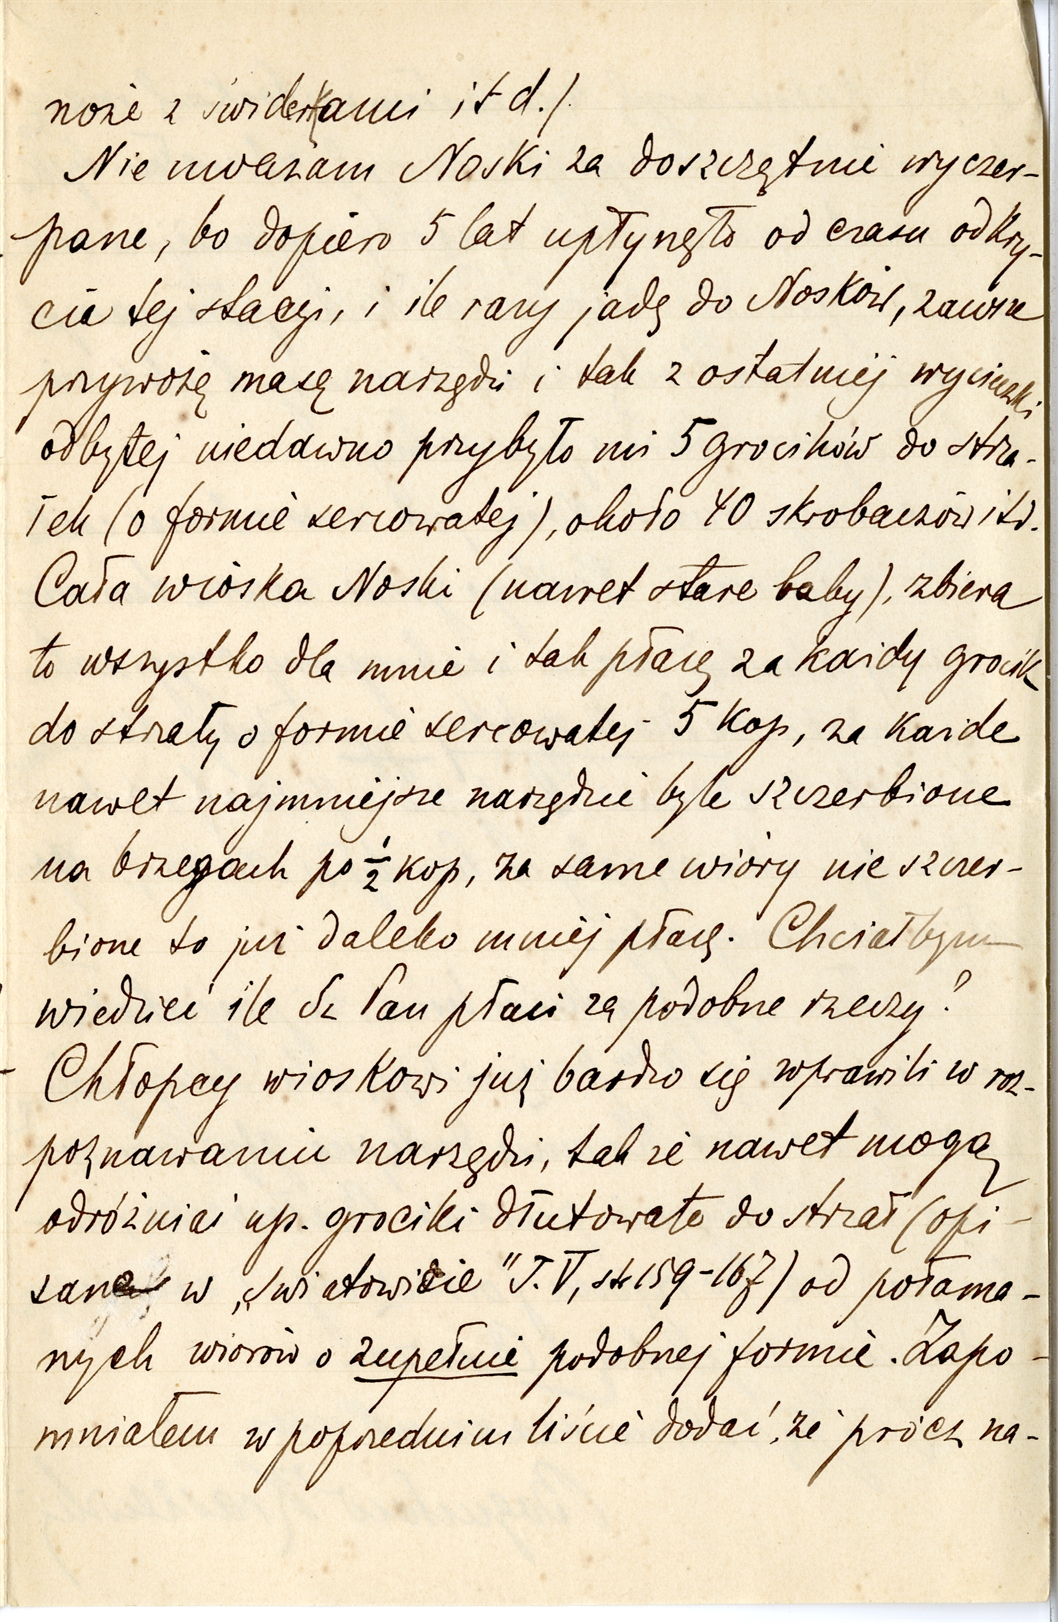 noże z świderkami itd.).
Nie uważam Noski za doszczętnie wyczer-
pane, bo dopiero 5 lat upłynęło od czasu odkry-
cia tej stacyi, i ile razy jadę do Nosków, zawsze
przywożę masę narzędzi i tak z ostatniej wycieczki
odbytej niedawno przybyło mi 5 grocików do strza-
łek (o formie sercowatej), około 40 skrobaczów itd.
Cała wioska Noski (nawet stare baby), zbiera
to wszystko dla mnie i tak płacę za każdy grocik
do strzały o formie sercowatej 5 kop, za każde
nawet najmniejsze narzędzie byle szczerbione
na brzegach po ½ kop, za same wióry nie szczer-
bione to już daleko mniej płacę. Chciałbym
wiedzieć ile Sz Pan płaci za podobne rzeczy?
Chłopcy wioskowi już bardzo się wprawili w roz-
poznawaniu narzędzi, tak że nawet mogą
odróżniać np. grociki dłutowate do strzał (opi-
sane w „Światowicie" T. V, str 159-167) od połama-
nych wiórów o zupełnie podobnej formie. Zapo-
mniałem w poprzednim liście dodać, że prócz na-